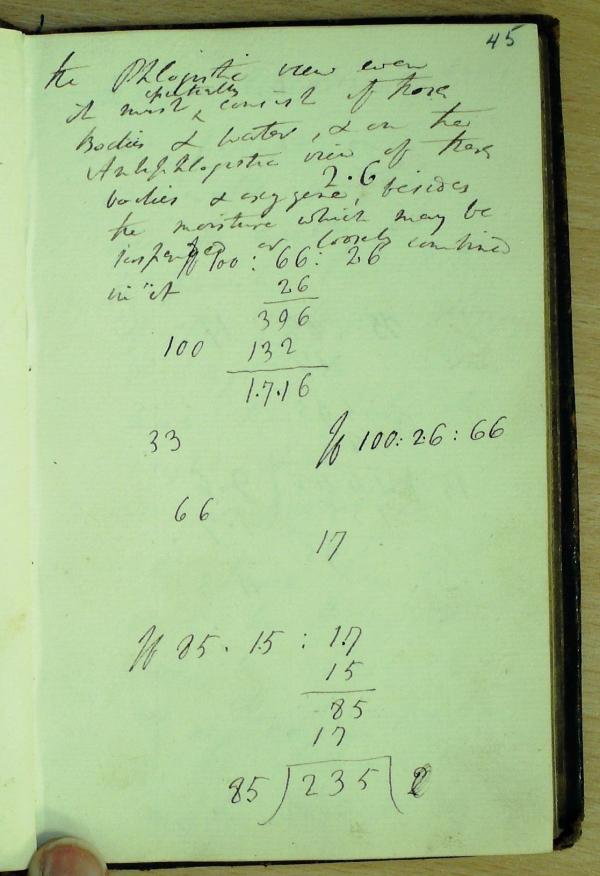 45
the Phlogistic view even
partially
it must consist of those
Bodies & water, & on the
Antiphlogistic view of these
2.6
bodies & oxygene, besides
the moisture which may be
suspended or loosely combined
in it
If 100 : 66 : 26
26
396
100 132
1.7.16
33 If 100 : 26 : 66
66
17
If 85 . 15 : 17
15
85
17
85 ) 235 ( 2